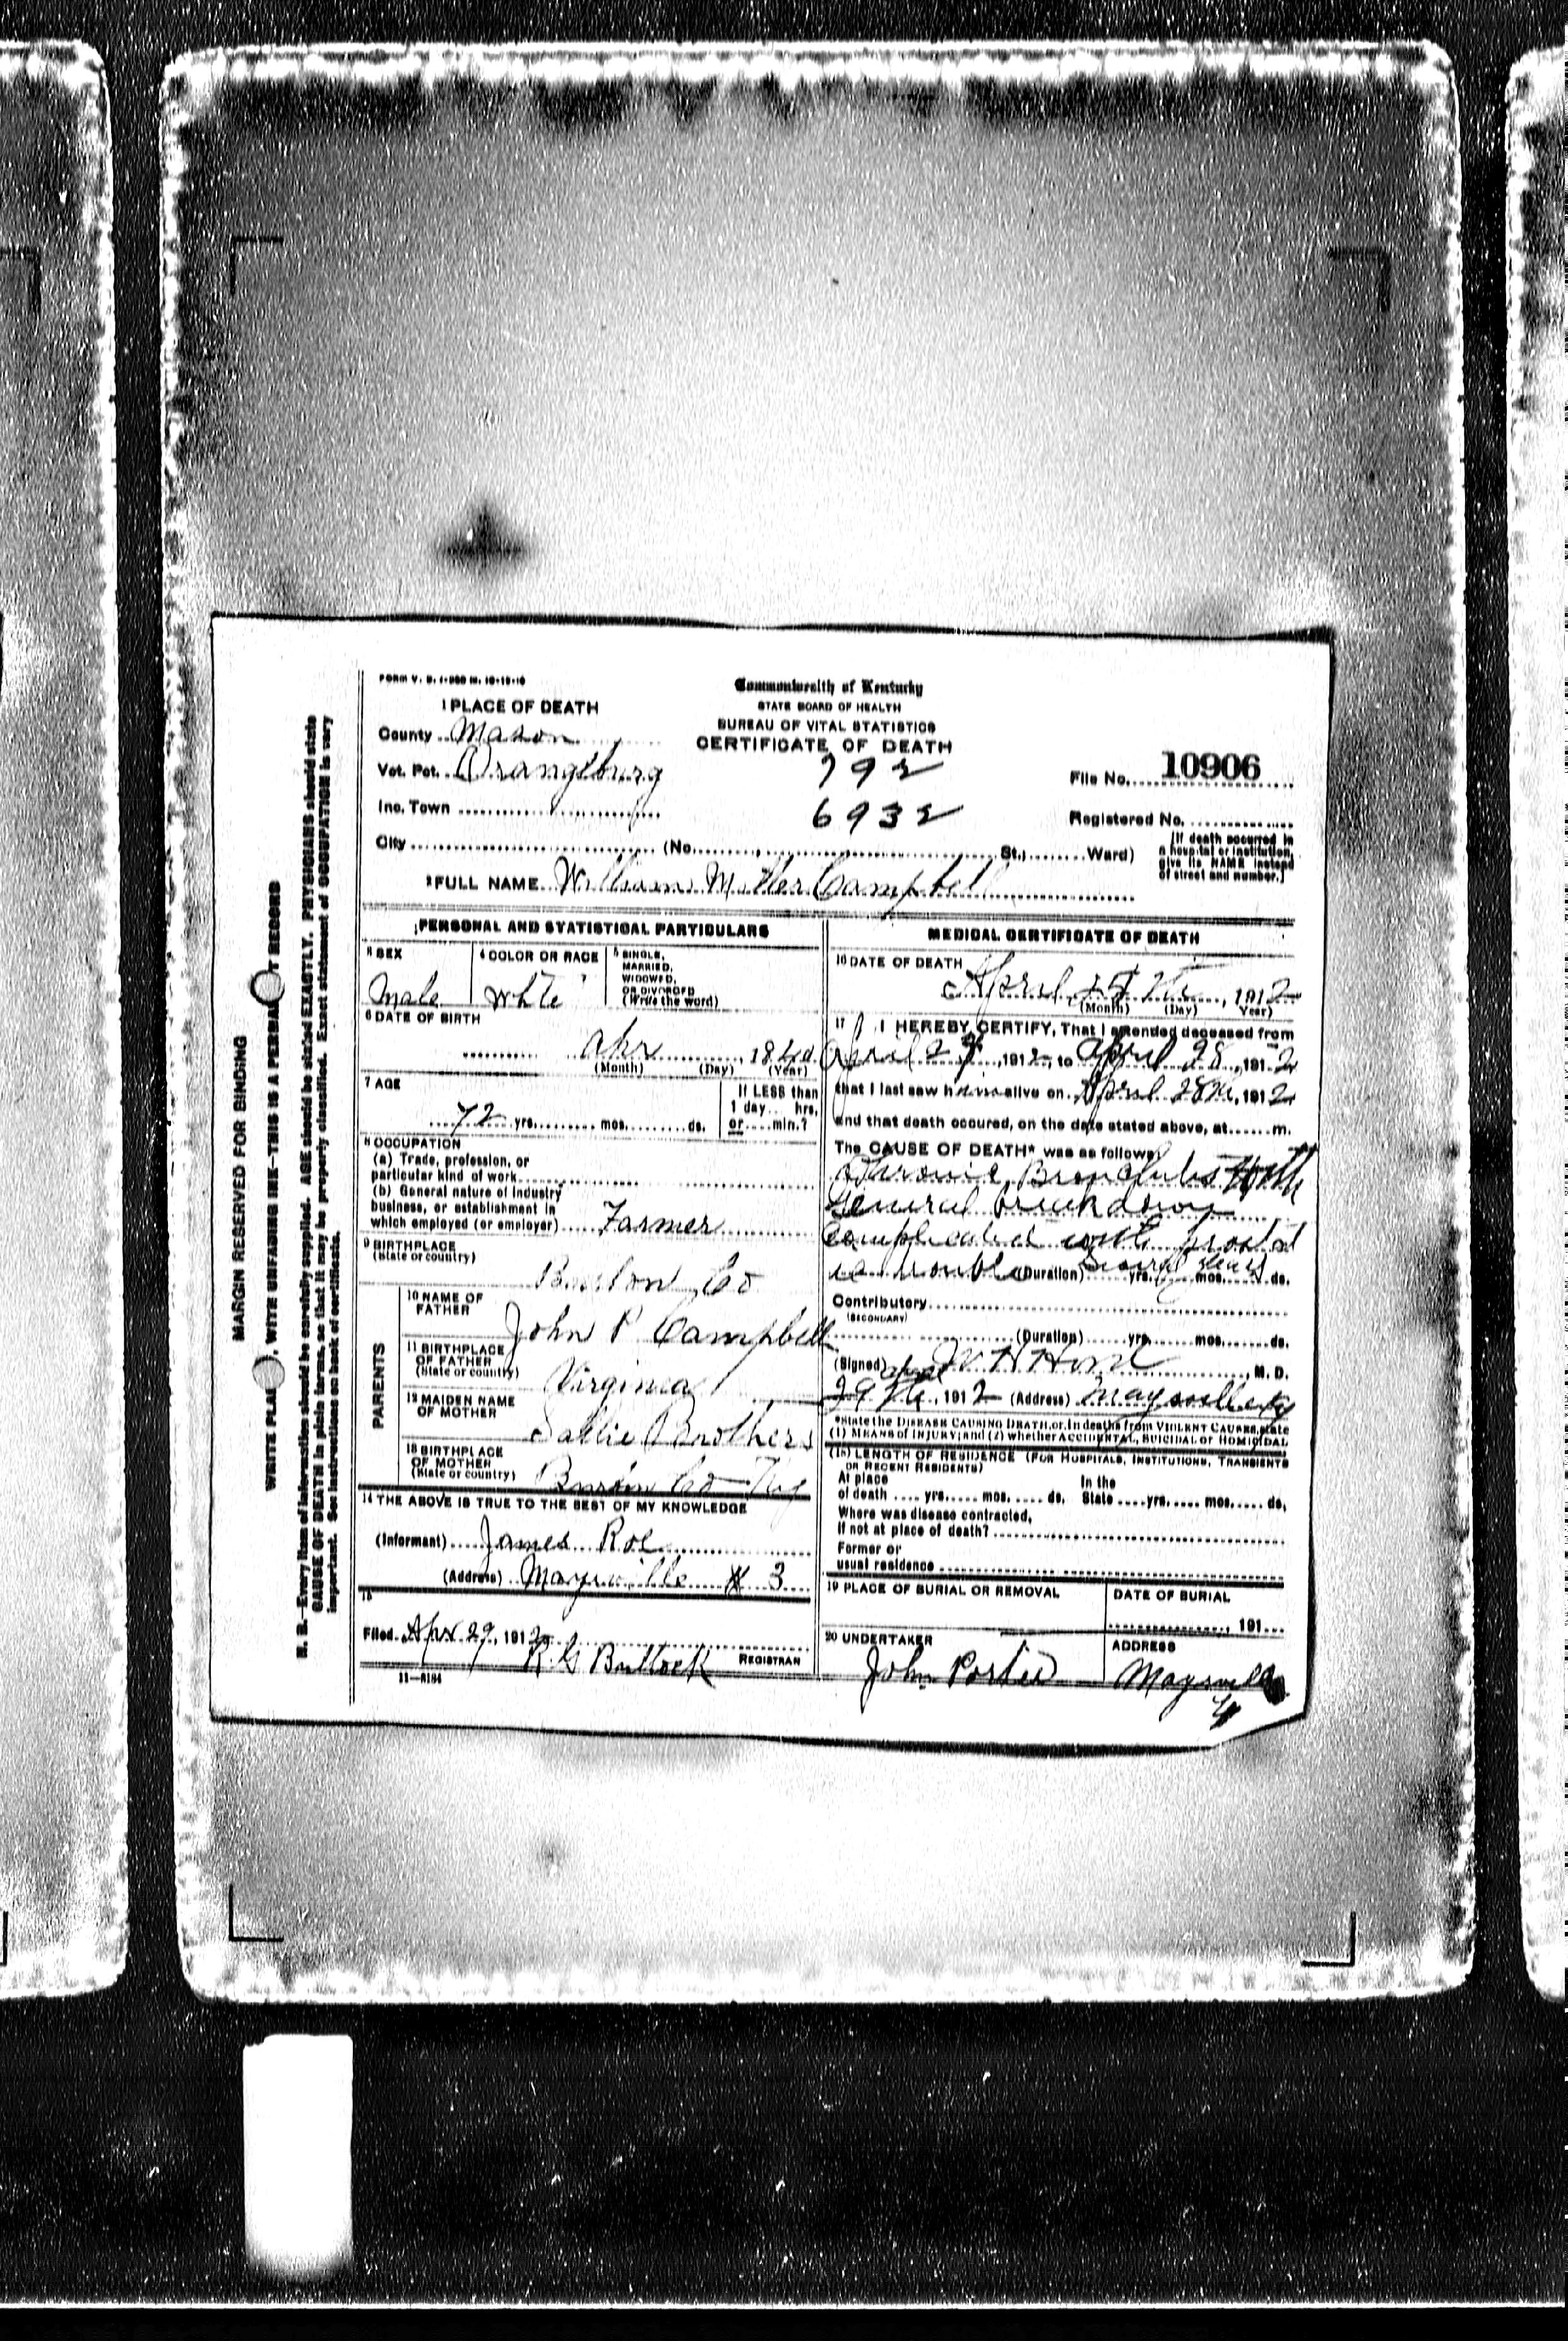 FORM V. S. 1-
1 PLACE OF DEATH
County Mason
Vot. Pct. Orangeburg
Inc. Town
City (No. St., Ward)
Commonwealth of Kentucky
STATE BOARD OF HEALTH
BUREAU OF VITAL STATISTICS
CERTIFICATE OF DEATH
792
6932
File No. 10906
Registered No.
[If death occurred in
a hospital or institution,
give its NAME instead
of street and number.]
2 FULL NAME William Miller Campbell
PERSONAL AND STATISTICAL PARTICULARS
3 SEX
Male
4 COLOR OR RACE
White
5 SINGLE,
MARRIED,
WIDOWED,
OR DIVORCED
(Write the word)
6 DATE OF BIRTH
Apr, 1840
(Month) (Day) (Year)
7 AGE
72 yrs. mos. ds.
If LESS than
1 day hrs.
or min.?
8 OCCUPATION
(a) Trade, profession, or
particular kind of work
(b) General nature of industry
business, or establishment in
which employed (or employer) Farmer
9 BIRTHPLACE
(State or country)
Co
PARENTS
10 NAME OF
FATHER
John P Campbell
11 BIRTHPLACE
OF FATHER
(State or country)
Virginia
12 MAIDEN NAME
OF MOTHER
Sallie Brothers
13 BIRTHPLACE
OF MOTHER
(State or country)
Co Ky
14 THE ABOVE IS TRUE TO THE BEST OF MY KNOWLEDGE
(Informant) James Roe
(Address) Maysville # 3
15
Filed Apr 29, 1912
R G Bullock REGISTRAR
11-
MEDICAL CERTIFICATE OF DEATH
16 DATE OF DEATH
April, 1912
(Month) (Day) Year)
17 I HEREBY CERTIFY, That I attended deceased from
April, 1912, to April 28, 1912
that I last saw him alive on April 28th, 1912
and that death occured, on the date stated above, at m.
The CAUSE OF DEATH* was as follows:
Chronic Bronchitis With
General break down
Complicated with prostat
ic trouble (Duration) Several years yrs. mos. ds.
Contributory
(SECONDARY)
(Duration) yrs. mos. ds.
(Signed) W H Hord, M. D.
April 29th, 1912 (Address) Maysville Ky
*State the DISEASE CAUSING DEATH, or, in deaths from VIOLENT CAUSES, state
(1) MEANS of INJURY; and (2) whether ACCIDENTAL, SUICIDAL or HOMICIDAL
(18) LENGTH OF RESIDENCE (FOR HOSPITALS, INSTITUTIONS, TRANSIENTS
OR RECENT RESIDENTS)
At place
of death yrs. mos. ds.
In the
State yrs. mos. ds.
Where was disease contracted,
if not at place of death?
Former or
usual residence
19 PLACE OF BURIAL OR REMOVAL
DATE OF BURIAL
, 191
20 UNDERTAKER
John Porter
ADDRESS
Maysville
MARGIN RESERVED FOR BINDING
WRITE PLAI , WITE UNFADING INK-THIS IS A PERMA T RECORD
N. B.-Every item of information should be carefully supplied. AGE should be stated EXACTLY. PHYSICIANS should state
CAUSE OF DEATH in plain terms, so that it may be properly classified. Exact statement of OCCUPATION is very
important. See instructions on back of certificate.